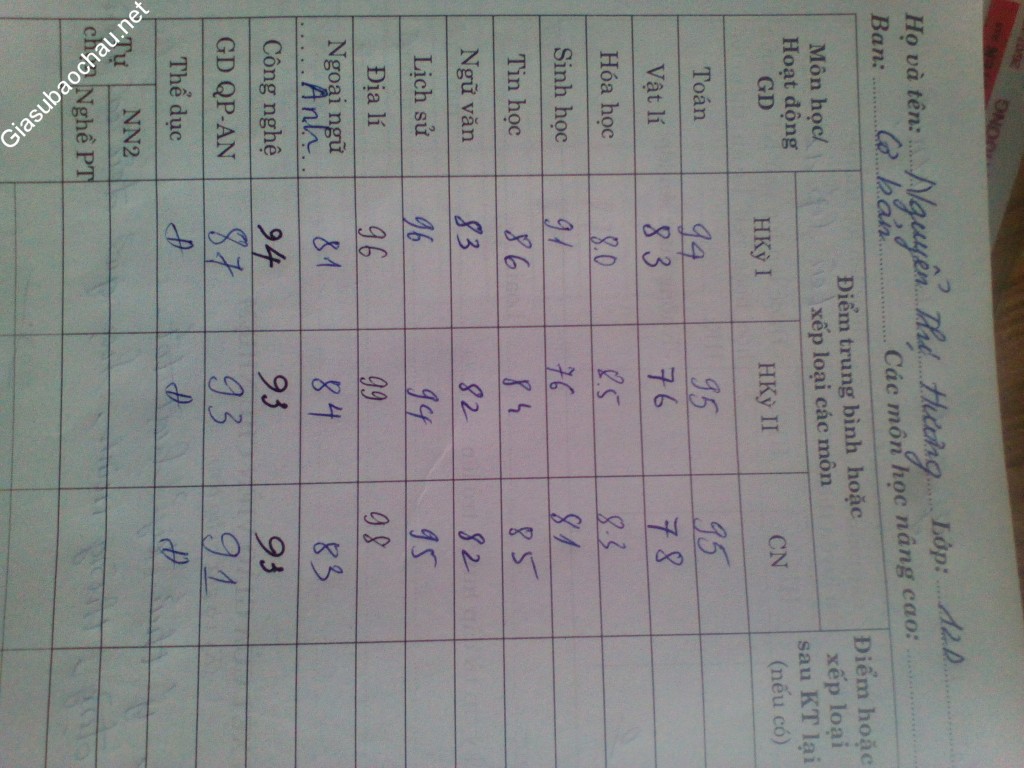 Họ và tên: Nguyễn Thị Hương Lớp: 12.D
Ban: Cơ bản Các môn học nâng cao:
Môn học/ Hoạt động GD
Điểm trung bình hoặc xếp loại các môn
Điểm hoặc xếp loại sau KT lại (nếu có)
HKỳ I HKỳ II CN
Toán 94 95 95
Vật lí 83 76 78
Hóa học 8.0 8.5 8.3
Sinh học 91 76 81
Tin học 86 84 85
Ngữ văn 83 82 82
Lịch sử 96 94 95
Địa lí 96 99 98
Ngoại ngữ Anh 81 84 83
Công nghệ 94 93 93
GD QP-AN 87 93 91
Thể dục
Tự chọn NN2
Nghề PT
Giasubaochau.net